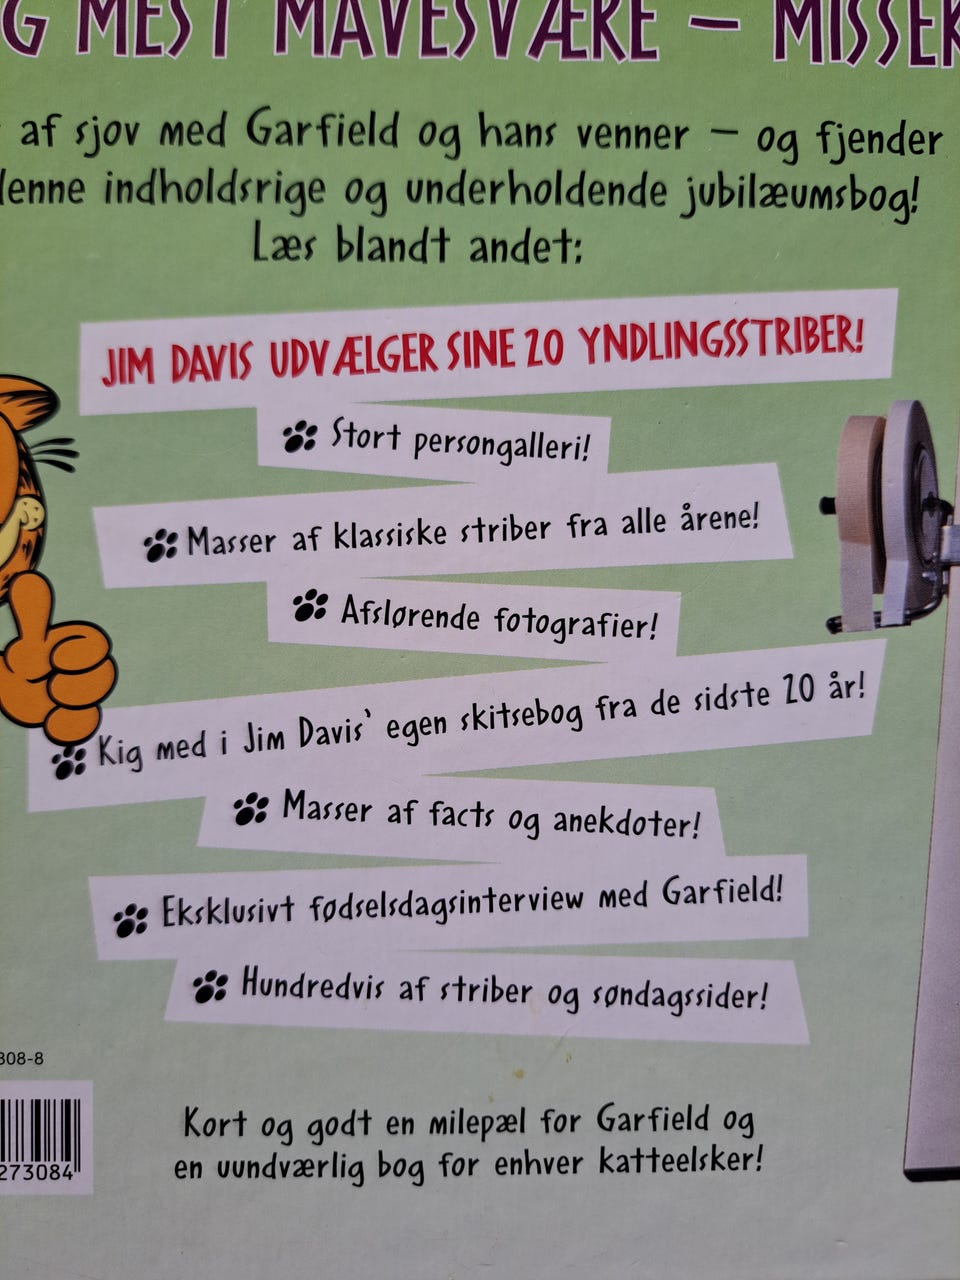 G MEST MAVESVÆRE – MISSEK
af sjov med Garfield og hans venner – og fjender
denne indholdsrige og underholdende jubilæumsbog!
Læs blandt andet:
JIM DAVIS UDVÆLGER SINE 20 YNDLINGSSTRIBER!
Stort persongalleri!
Masser af klassiske striber fra alle årene!
Afslørende fotografier!
Kig med i Jim Davis' egen skitsebog fra de sidste 20 år!
Masser af facts og anekdoter!
Eksklusivt fødselsdagsinterview med Garfield!
Hundredvis af striber og søndagssider!
308-8
273084
Kort og godt en milepæl for Garfield og
en uundværlig bog for enhver katteelsker!